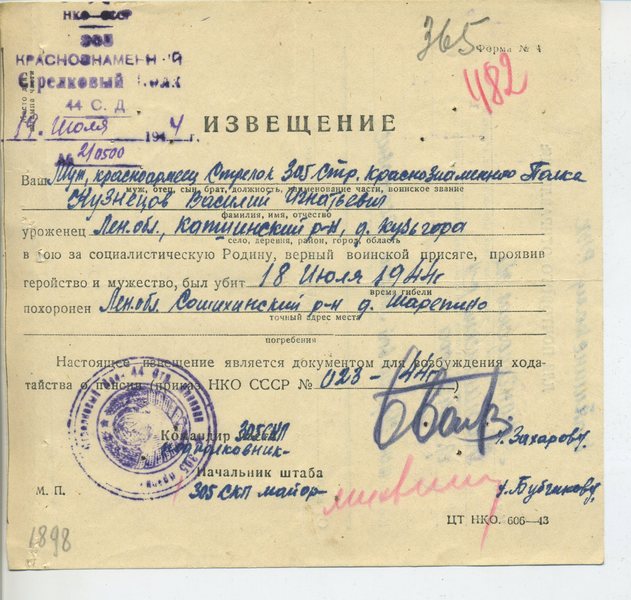 НКО СССР
305
КРАСНОЗНАМЕННЫЙ
Стрелковый Полк
44 С. Д
19. Июля 1944 г.
№ 2/0500
365
Форма № 4
482
ИЗВЕЩЕНИЕ
Ваш Муж, красноармеец Стрелок 305 Стр. Краснознаменного Полка
муж, отец, сын, брат, должность, наименование части, воинское звание
Кузнецов Василий Игнатьевич
фамилия, имя, отчество
уроженец Лен. обл., Капшинский р-н, д. Кузьгора
село, деревня, район, город, область
в бою за социалистическую Родину, верный воинской присяге, проявив
геройство и мужество, был убит 18 Июля 1944 г
время гибели
похоронен Лен. обл Сошихинский р-н д. Шарепино
точный адрес места
погребения
Настоящее извещение является документом для возбуждения хода-
тайства о пенсии (приказ НКО СССР № 023-44г.)
Командир 305 СКП
Подполковник-
/. Захаров/
Начальник штаба
305 СКП майор-
М. П.
ЦТ НКО. 606—43
1898